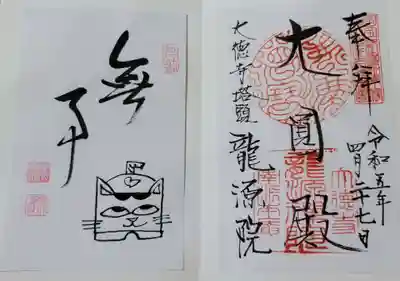 奉拝
令和五年
四月二十七日
大圓殿
大徳寺塔頭
龍源院
無事